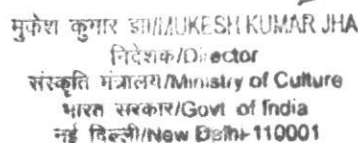 मुकेश कुमार झा/MUKESH KUMAR JHA
निदेशक/Director
संस्कृति मंत्रालय/Ministry of Culture
भारत सरकार/Govt of India
नई दिल्ली/New Delhi-110001